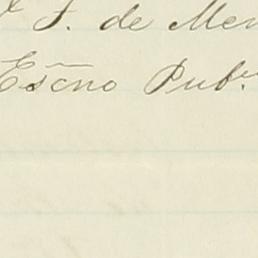 F. de Men
Escno Pubco